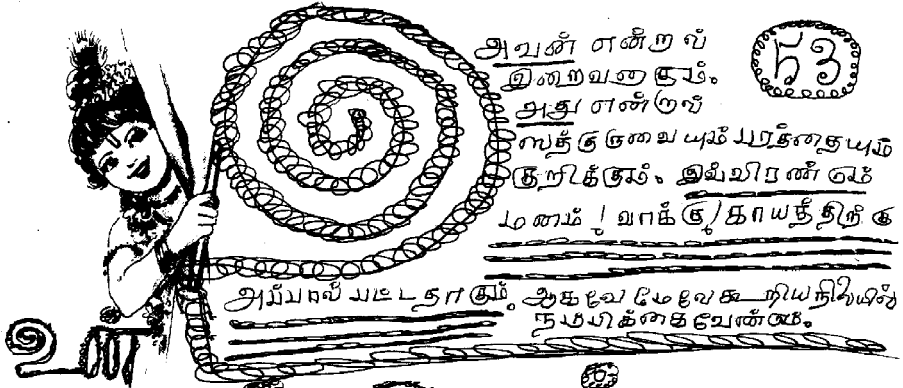 அவன் என்றால்
இறைவனாகும்.
53
அது என்றால்
ஸத்குருவையும் பரத்தையும்
குறிக்கும். இவ்விரண்டும்
மனம் / வாக்கு / காயத்திற்கு
அப்பால் பட்டதாகும், ஆகவே மேலே கூறிய நிலையில்
நம்பிக்கை வேண்டும்.